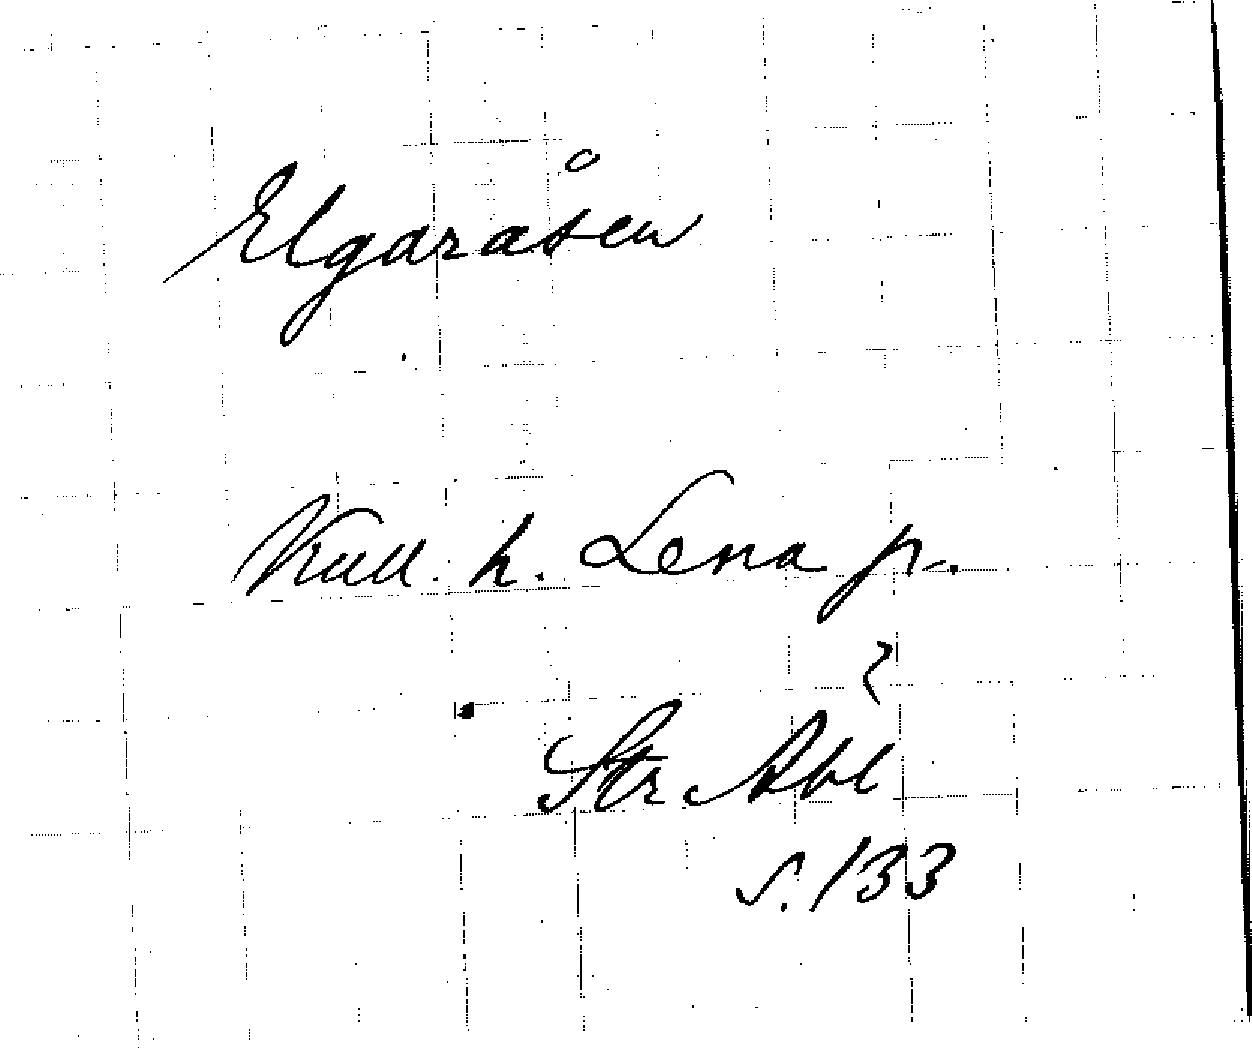 Elgaråsen
Kull. h. Lena p.
Str Abl
s. 133